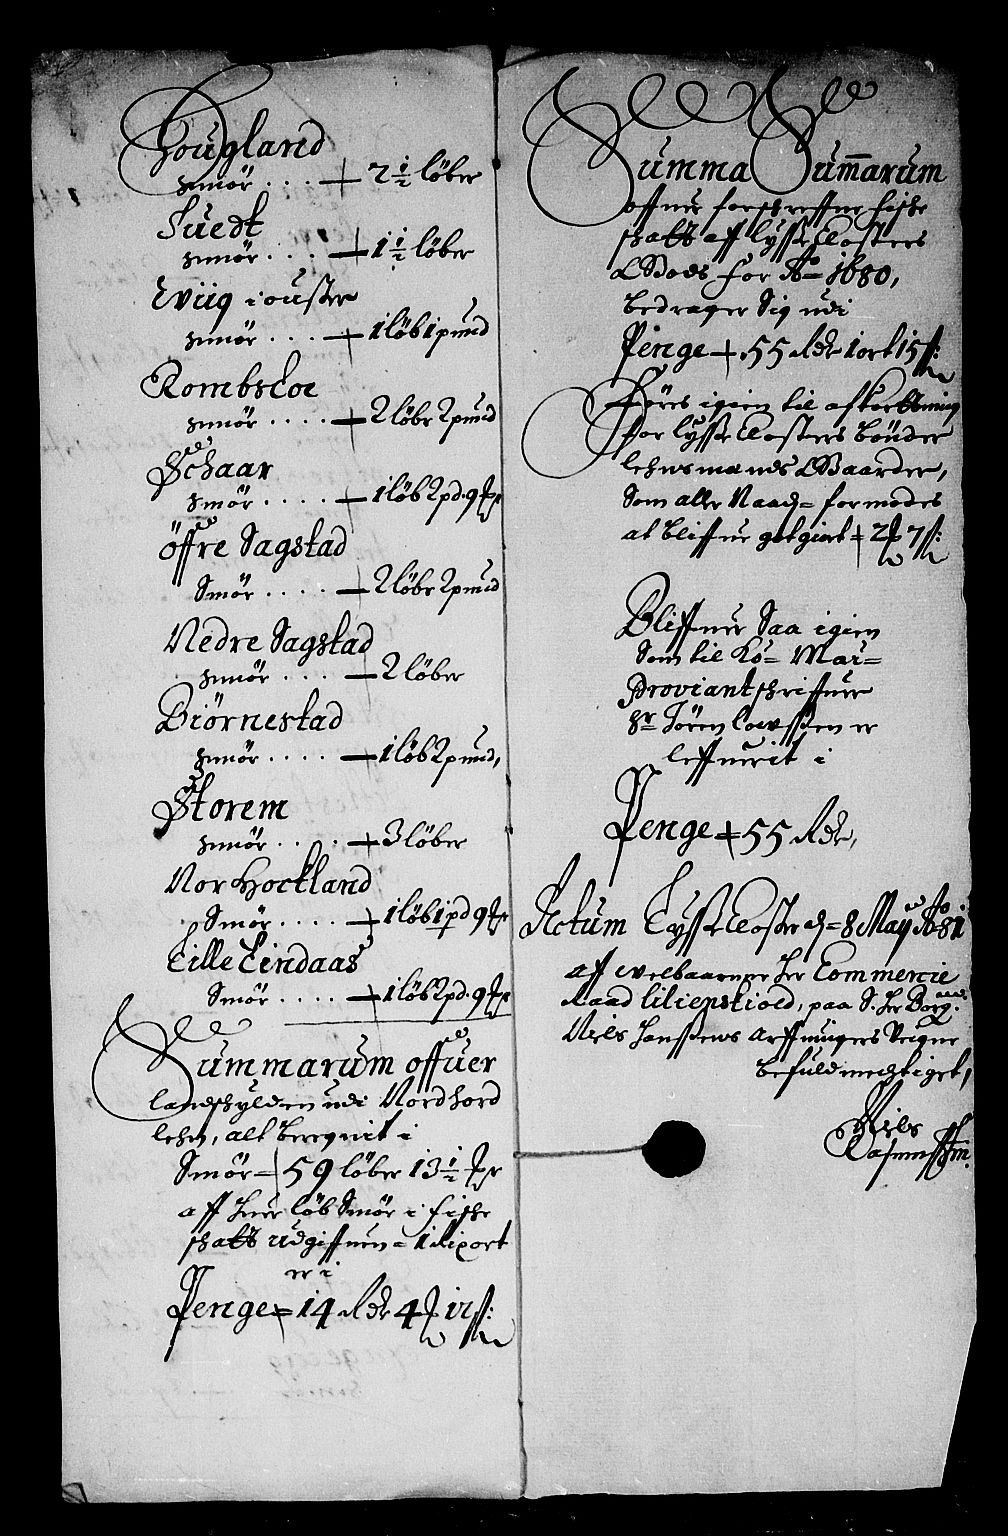 Hougland
smör . . . . 2½ löber
Tuedt
smör . . . . 1½ löber
Eviig i ouster
smör . . . . 1 löb 1 pund
Rombsloe
smör . . . . 2 löbr 2 pund
Schaar
smör . . . . 1 löb 2 pd. 9
Öffre Sagstad
Smör . . . . 2 löbr 2 pund
Nedre Sagstad
smör . . . . 2 löber
Biörnestad
smör . . . . 1 löb 2 pund,
Storem
smör . . . . 3 löber
Nor Hockland
Smör . . . . 1 löb 1 pd 9
Lille Lindaas
Smör . . . . 1 löb 2 pd. 9
Summarum offuer
landschylden udi Nordhord
lehn, alt beregnit i
Smör = 59 löber 13½
aff huer löb Smör i fiske
schatt udgiffuen = 1 Rixort
er i
Penge = 14 Rdr 4 12 s:
Summa Summarum
offuer forschreffne fiske
schatt aff Lysse Closters
Gods for Ao 1680,
bedrager Sig udi
Penge 55 Rdr 1 ort 15 s:
Förs igien til afkortning
for Lysse Closters bönder
lehnsmands Gaarder,
Som aller Naad= formodes
at bliffue gotgiort = 2 7 s:
Bliffuer Saa igien
Som til Ko= May=
Proviantschriffuer
Hr Sören er
leffuerit i
Penge 55 Rdr,
Actum Lysse Closter d= 8 May Ao 81
aff welbaarne her Commercie
Raad Lilienskiold, paa S. her Borg.
Niels Hanssens Arffuingers Veigne
befuldmechtiget,
Niels